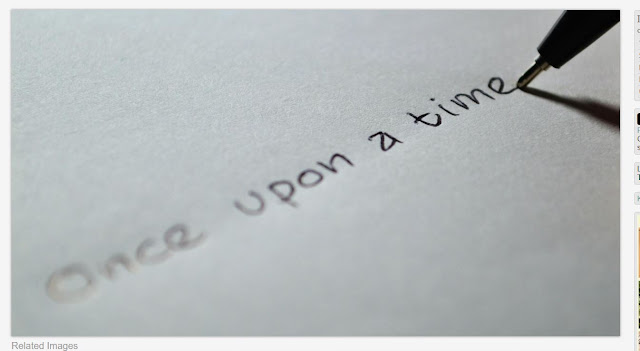 Once upon a time
Related Images